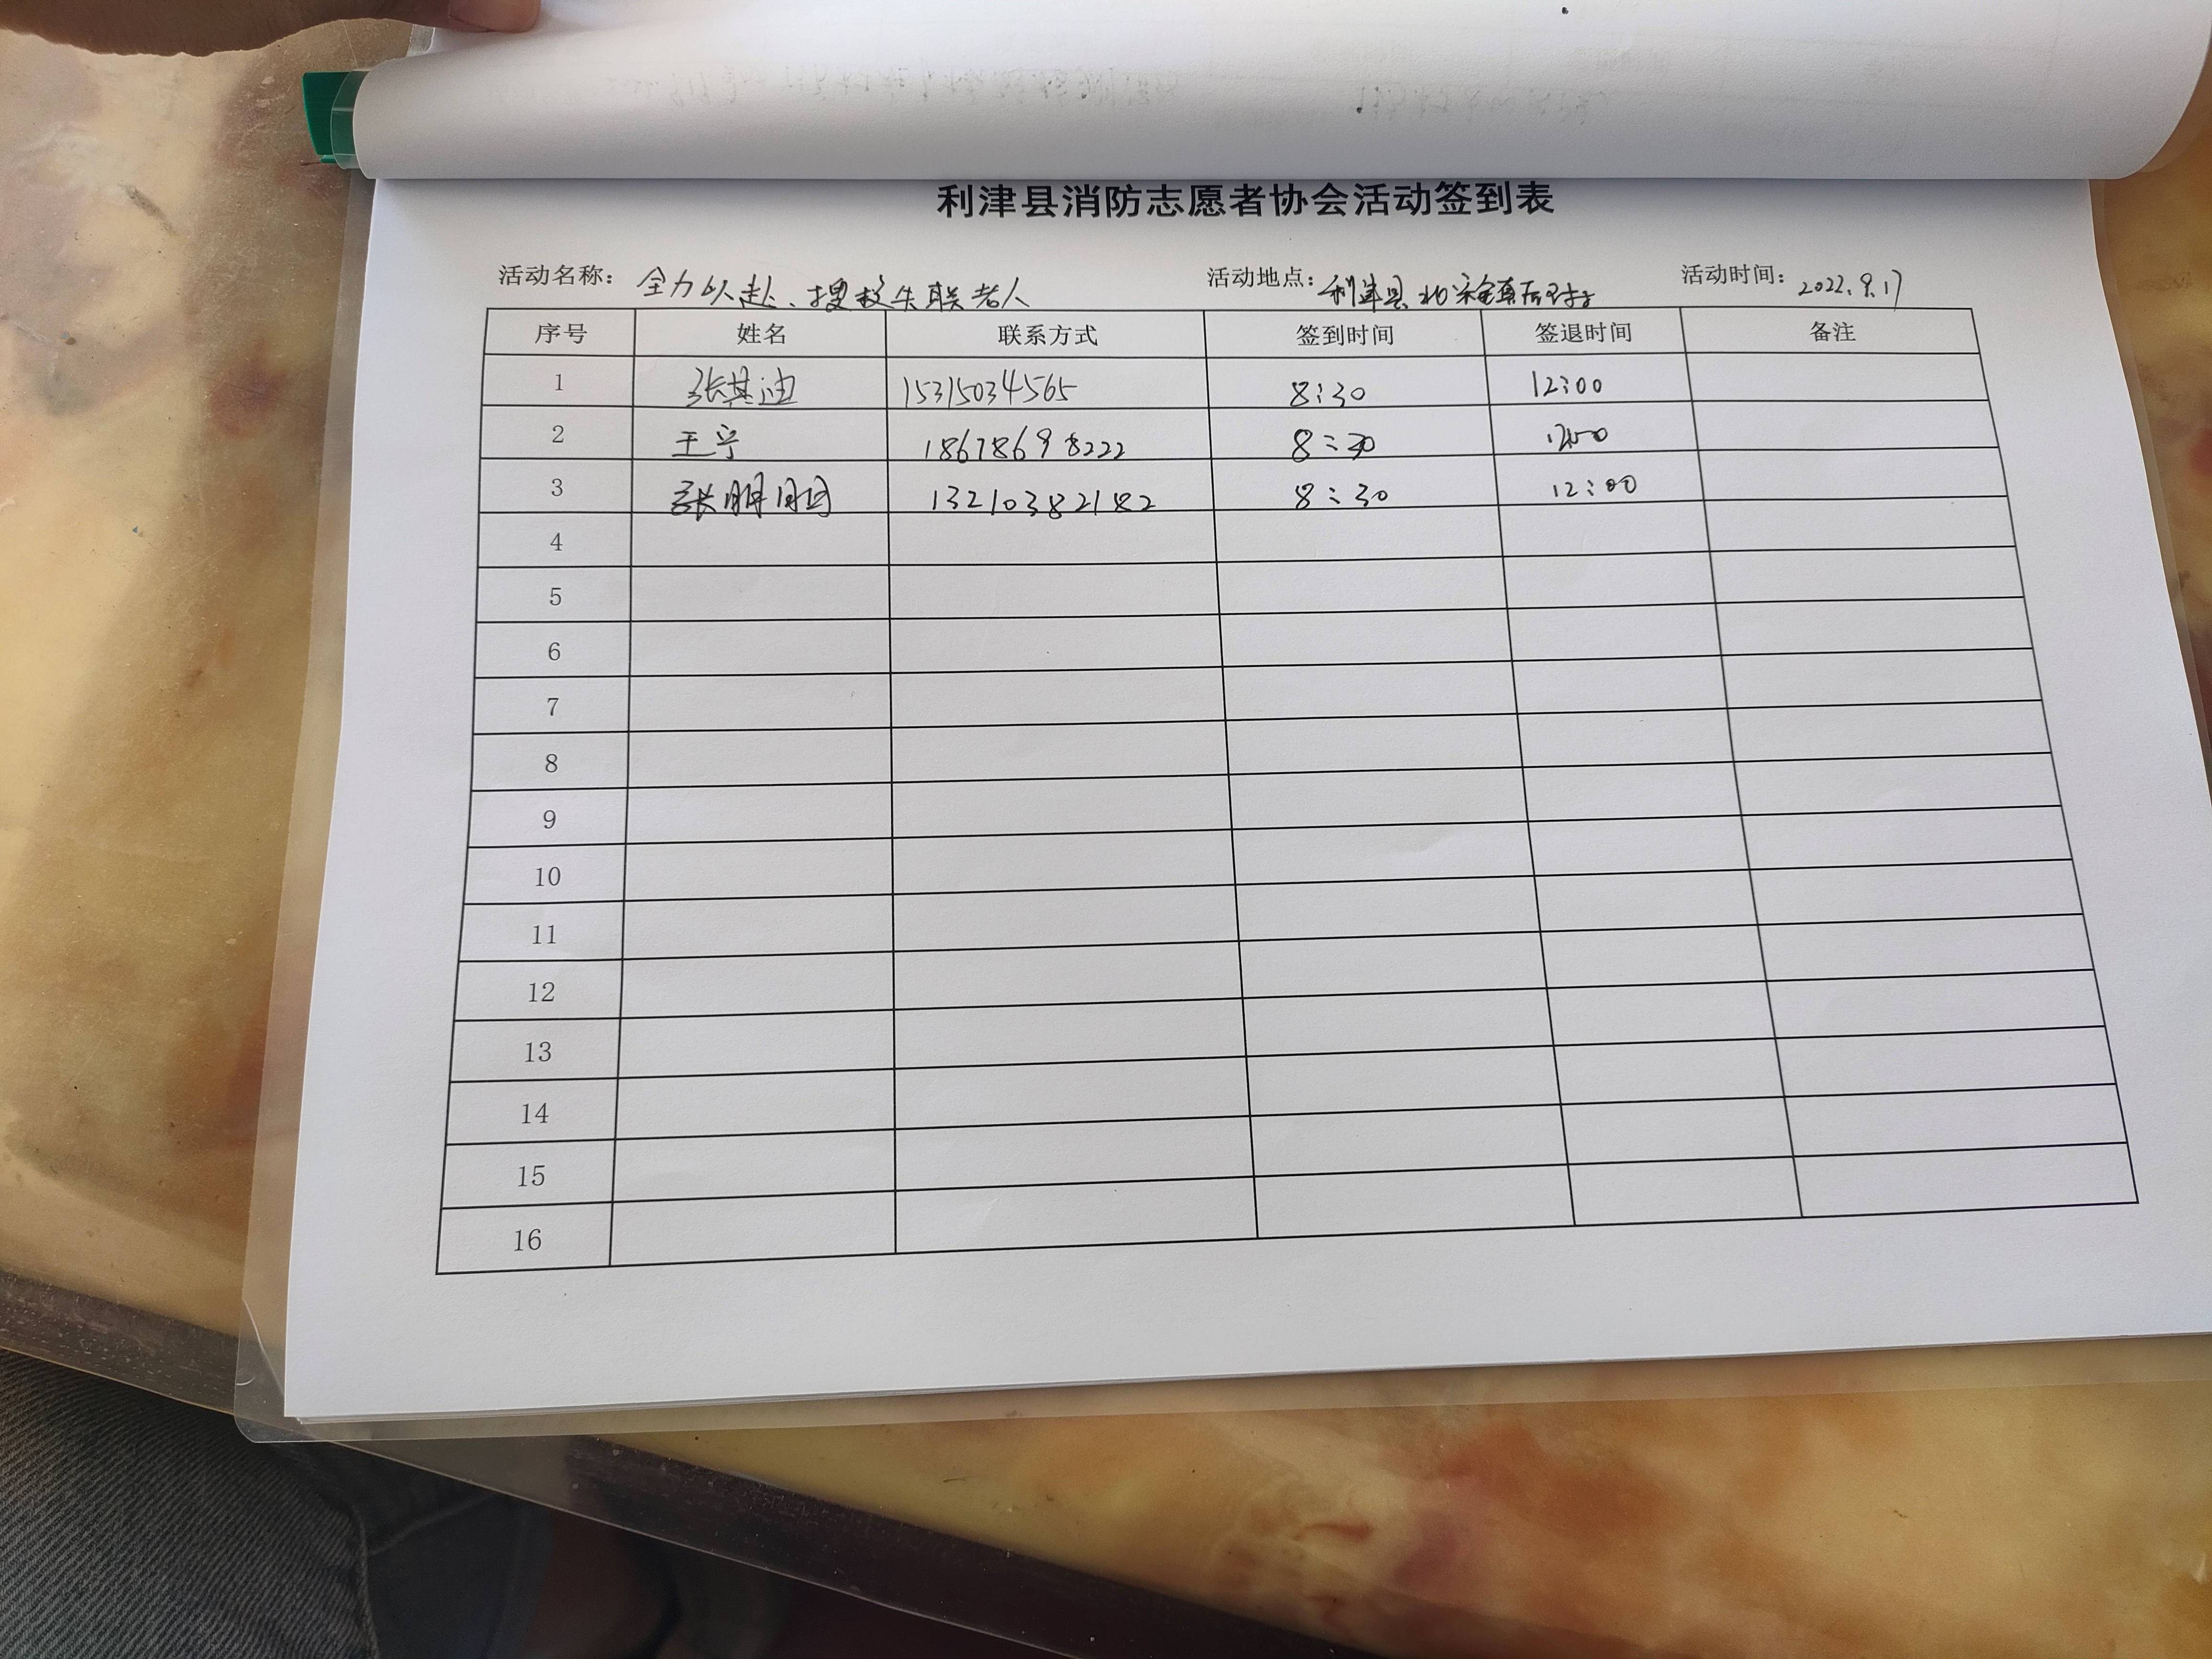 利津县消防志愿者协会活动签到表
活动名称：全力以赴、搜救失联老人 活动地点：利津县北宋镇 活动时间：2022.9.17
序号 姓名 联系方式 签到时间 签退时间 备注
1 张基迪 15315034565 8:30 12:00
2 王宁 18678698222 8:30 12:00
3 张 13210382182 8:30 12:00
4
5
6
7
8
9
10
11
12
13
14
15
16